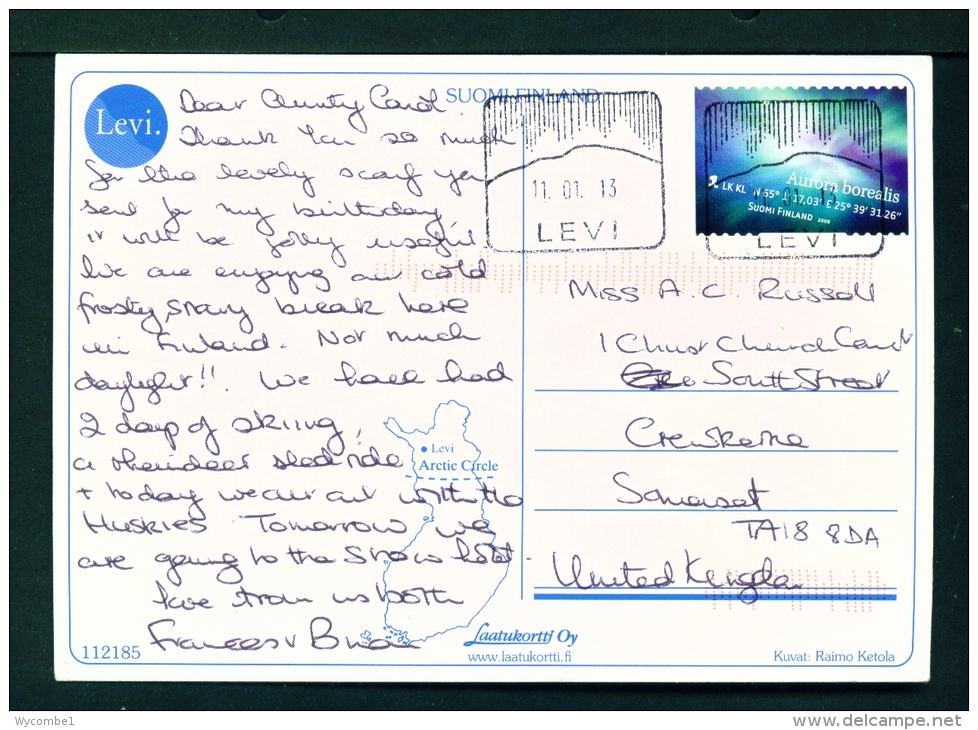 Levi.
SUOMI FINLAND
Dear Aunty Carol
Thank You so much
for the lovely scarf you
sent for my birthday,
it will be jolly useful.
We are enjoying our cold
frosty, snowy break here
in Finland. Not much
daylight!! We have had
2 days of skiing,
a rheindeer sled ride
+ today we are out with the
Huskies Tomorrow we
are going to the Snow hotel -
love from us both
Frances + Brian
112185
11. 01. 13
LEVI
Aurora borealis
LK KL N 65° 1' 17,03" E 25° 39' 31.26"
SUOMI FINLAND 2009
LEVI
Miss A. C. Russell
1 Christ Church Court
South Street
Crewkerne
Somerset
TA18 8DA
United Kingdom
Levi
Arctic Circle
Laatukortti Oy
www.laatukortti.fi
Kuvat: Raimo Ketola
Wycombe1
http://www.delcampe.net